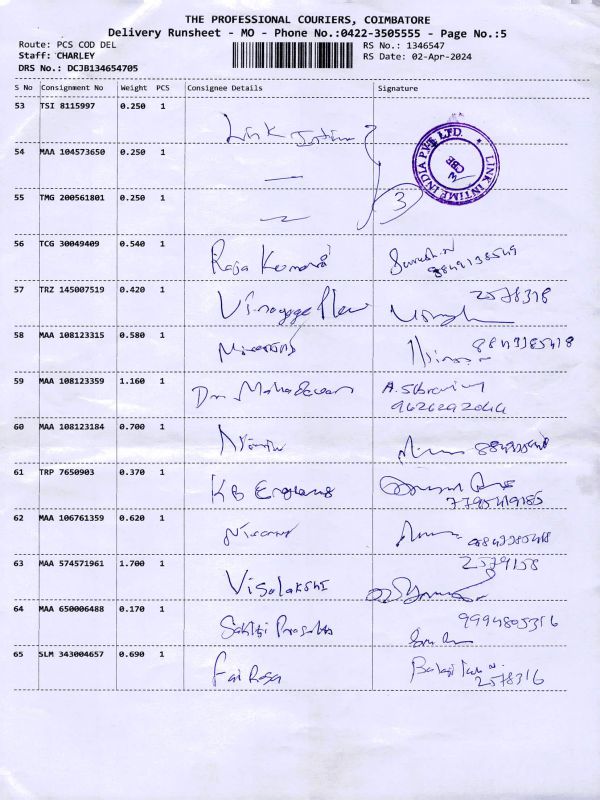 THE PROFESSIONAL COURIERS, COIMBATORE
Delivery Runsheet - MO - Phone No.:0422-3505555 - Page No.:5
Route: PCS COD DEL
RS No.: 1346547
Staff: CHARLEY
RS Date: 02-Apr-2024
DRS No.: DCJB134654705
S No Consignment No Weight PCS Consignee Details Signature
53 TSI 8115997 0.250 1
Link Intime
LINK INTIME INDIA PVT. LTD.
CBE
54 MAA 104573650 0.250 1
55 TMG 200561801 0.250 1
3
56 TCG 30049409 0.540 1
Raja Kumar
57 TRZ 145007519 0.420 1
2578318
58 MAA 108123315 0.580 1
59 MAA 108123359 1.160 1
Dr. Mahadevan
9626292044
60 MAA 108123184 0.700 1
61 TRP 7650903 0.370 1
KB
62 MAA 106761359 0.620 1
63 MAA 574571961 1.700 1
2579158
Visalakshi
64 MAA 650006488 0.170 1
9994805316
Sakthi
65 SLM 343004657 0.690 1
Balaji
2578316